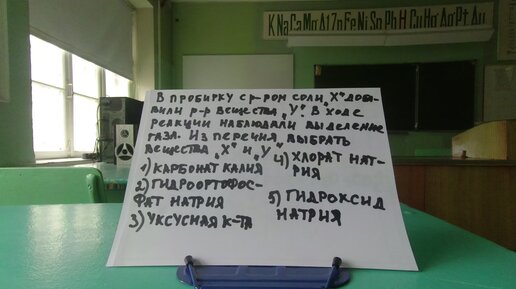 K Na Ca Mg Al Zn Fe Ni Sn Pb H Cu Hg Ag Pt Au
В ПРОБИРКУ С Р-РОМ СОЛИ „Х" ДОБА-
ВИЛИ Р-Р ВЕЩЕСТВА „У". В ХОДЕ
РЕАКЦИИ НАБЛЮДАЛИ ВЫДЕЛЕНИЕ
ГАЗА. ИЗ ПЕРЕЧНЯ ВЫБРАТЬ
ВЕЩЕСТВА „Х" И „У"
1) КАРБОНАТ КАЛИЯ
2) ГИДРООРТОФОС-
ФАТ НАТРИЯ
3) УКСУСНАЯ К-ТА
4) ХЛОРАТ НАТ-
РИЯ
5) ГИДРОКСИД
НАТРИЯ